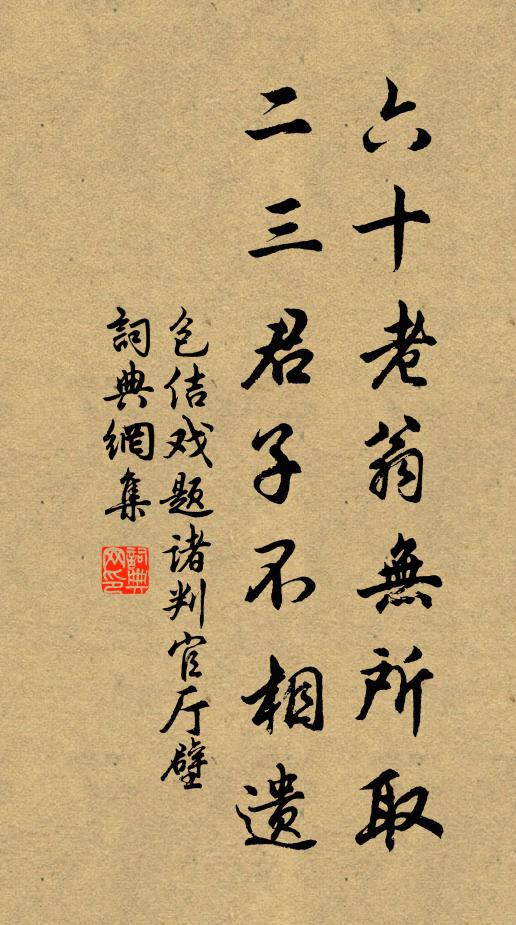 六十老翁無所取
二三君子不相遗
包佶戏题诸判官厅壁
詞典網集
詞典网印